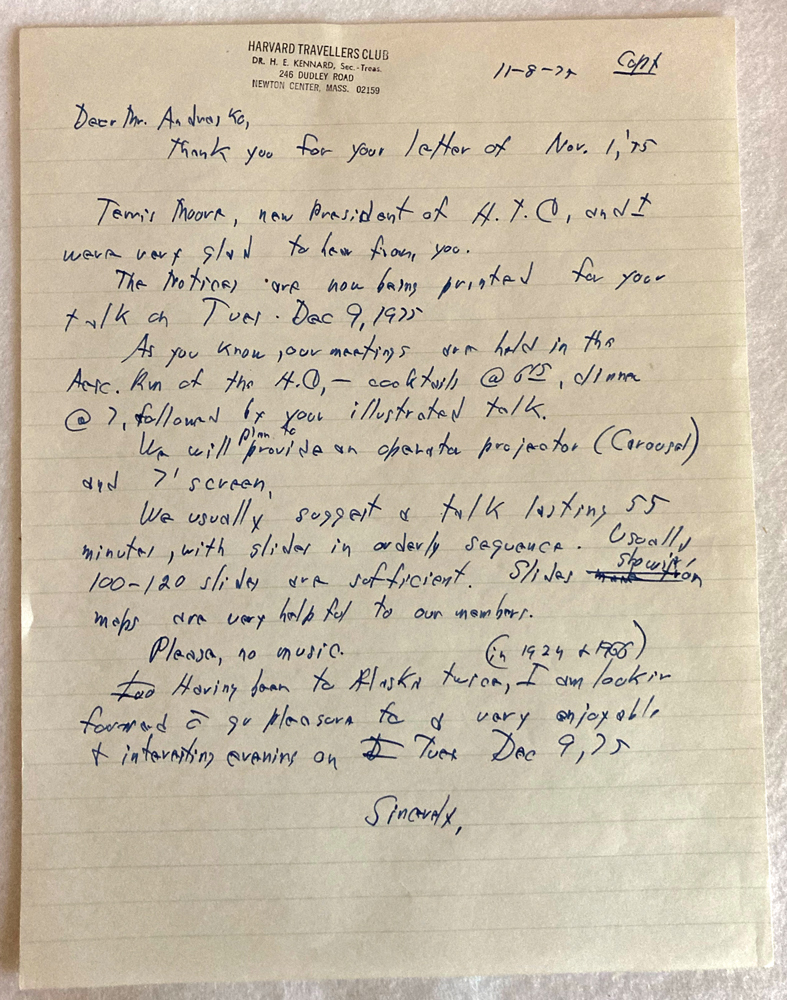 HARVARD TRAVELLERS CLUB
DR. H. E. KENNARD, Sec.-Treas.
246 DUDLEY ROAD
NEWTON CENTER, MASS. 02159
11-8-75 Copy
Dear Mr. Andrasko,
Thank you for your letter of Nov. 1, '75
Terris Moore, new President of H.T.C, and I
were very glad to hear from, you.
The Notices are now being printed for your
talk on Tues. Dec 9, 1975
As you know, our meetings are held in the
Aesc. Rm of the H.C, — cocktails @ 6 15, dinner
@ 7, followed by your illustrated talk.
We will plan to provide an operator projector (Carousel)
and 7' screen,
We usually suggest a talk lasting 55
minutes, with slides in orderly sequence. Usually
100-120 slides are sufficient. Slides showing
maps are very helpful to our members.
Please, no music. (in 1924 & 1966)
Having been to Alaska twice, I am lookin
forward c̄ gr pleasure to a very enjoyable
& interesting evening on Tues Dec 9, 75
Sincerely,